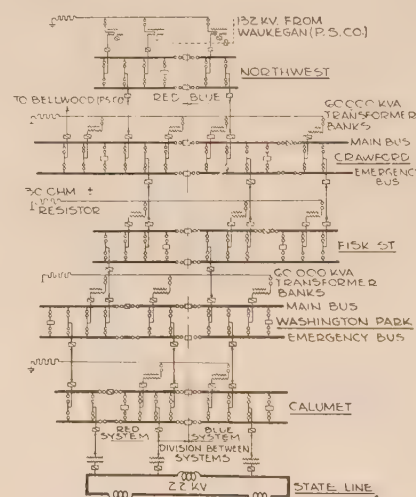 132 KV. FROM
WAUKEGAN (P.S.CO.)
NORTHWEST
TO BELLWOOD (P.S.CO.)
RED BLUE
60000 KVA
TRANSFORMER
BANKS
MAIN BUS
CRAWFORD
EMERGENCY
BUS
30 OHM
RESISTOR
FISK ST
60 000 KVA
TRANSFORMER
BANKS
MAIN BUS
WASHINGTON PARK
EMERGENCY BUS
CALUMET
RED
SYSTEM
BLUE
SYSTEM
DIVISION BETWEEN
SYSTEMS
22 KV
STATE LINE